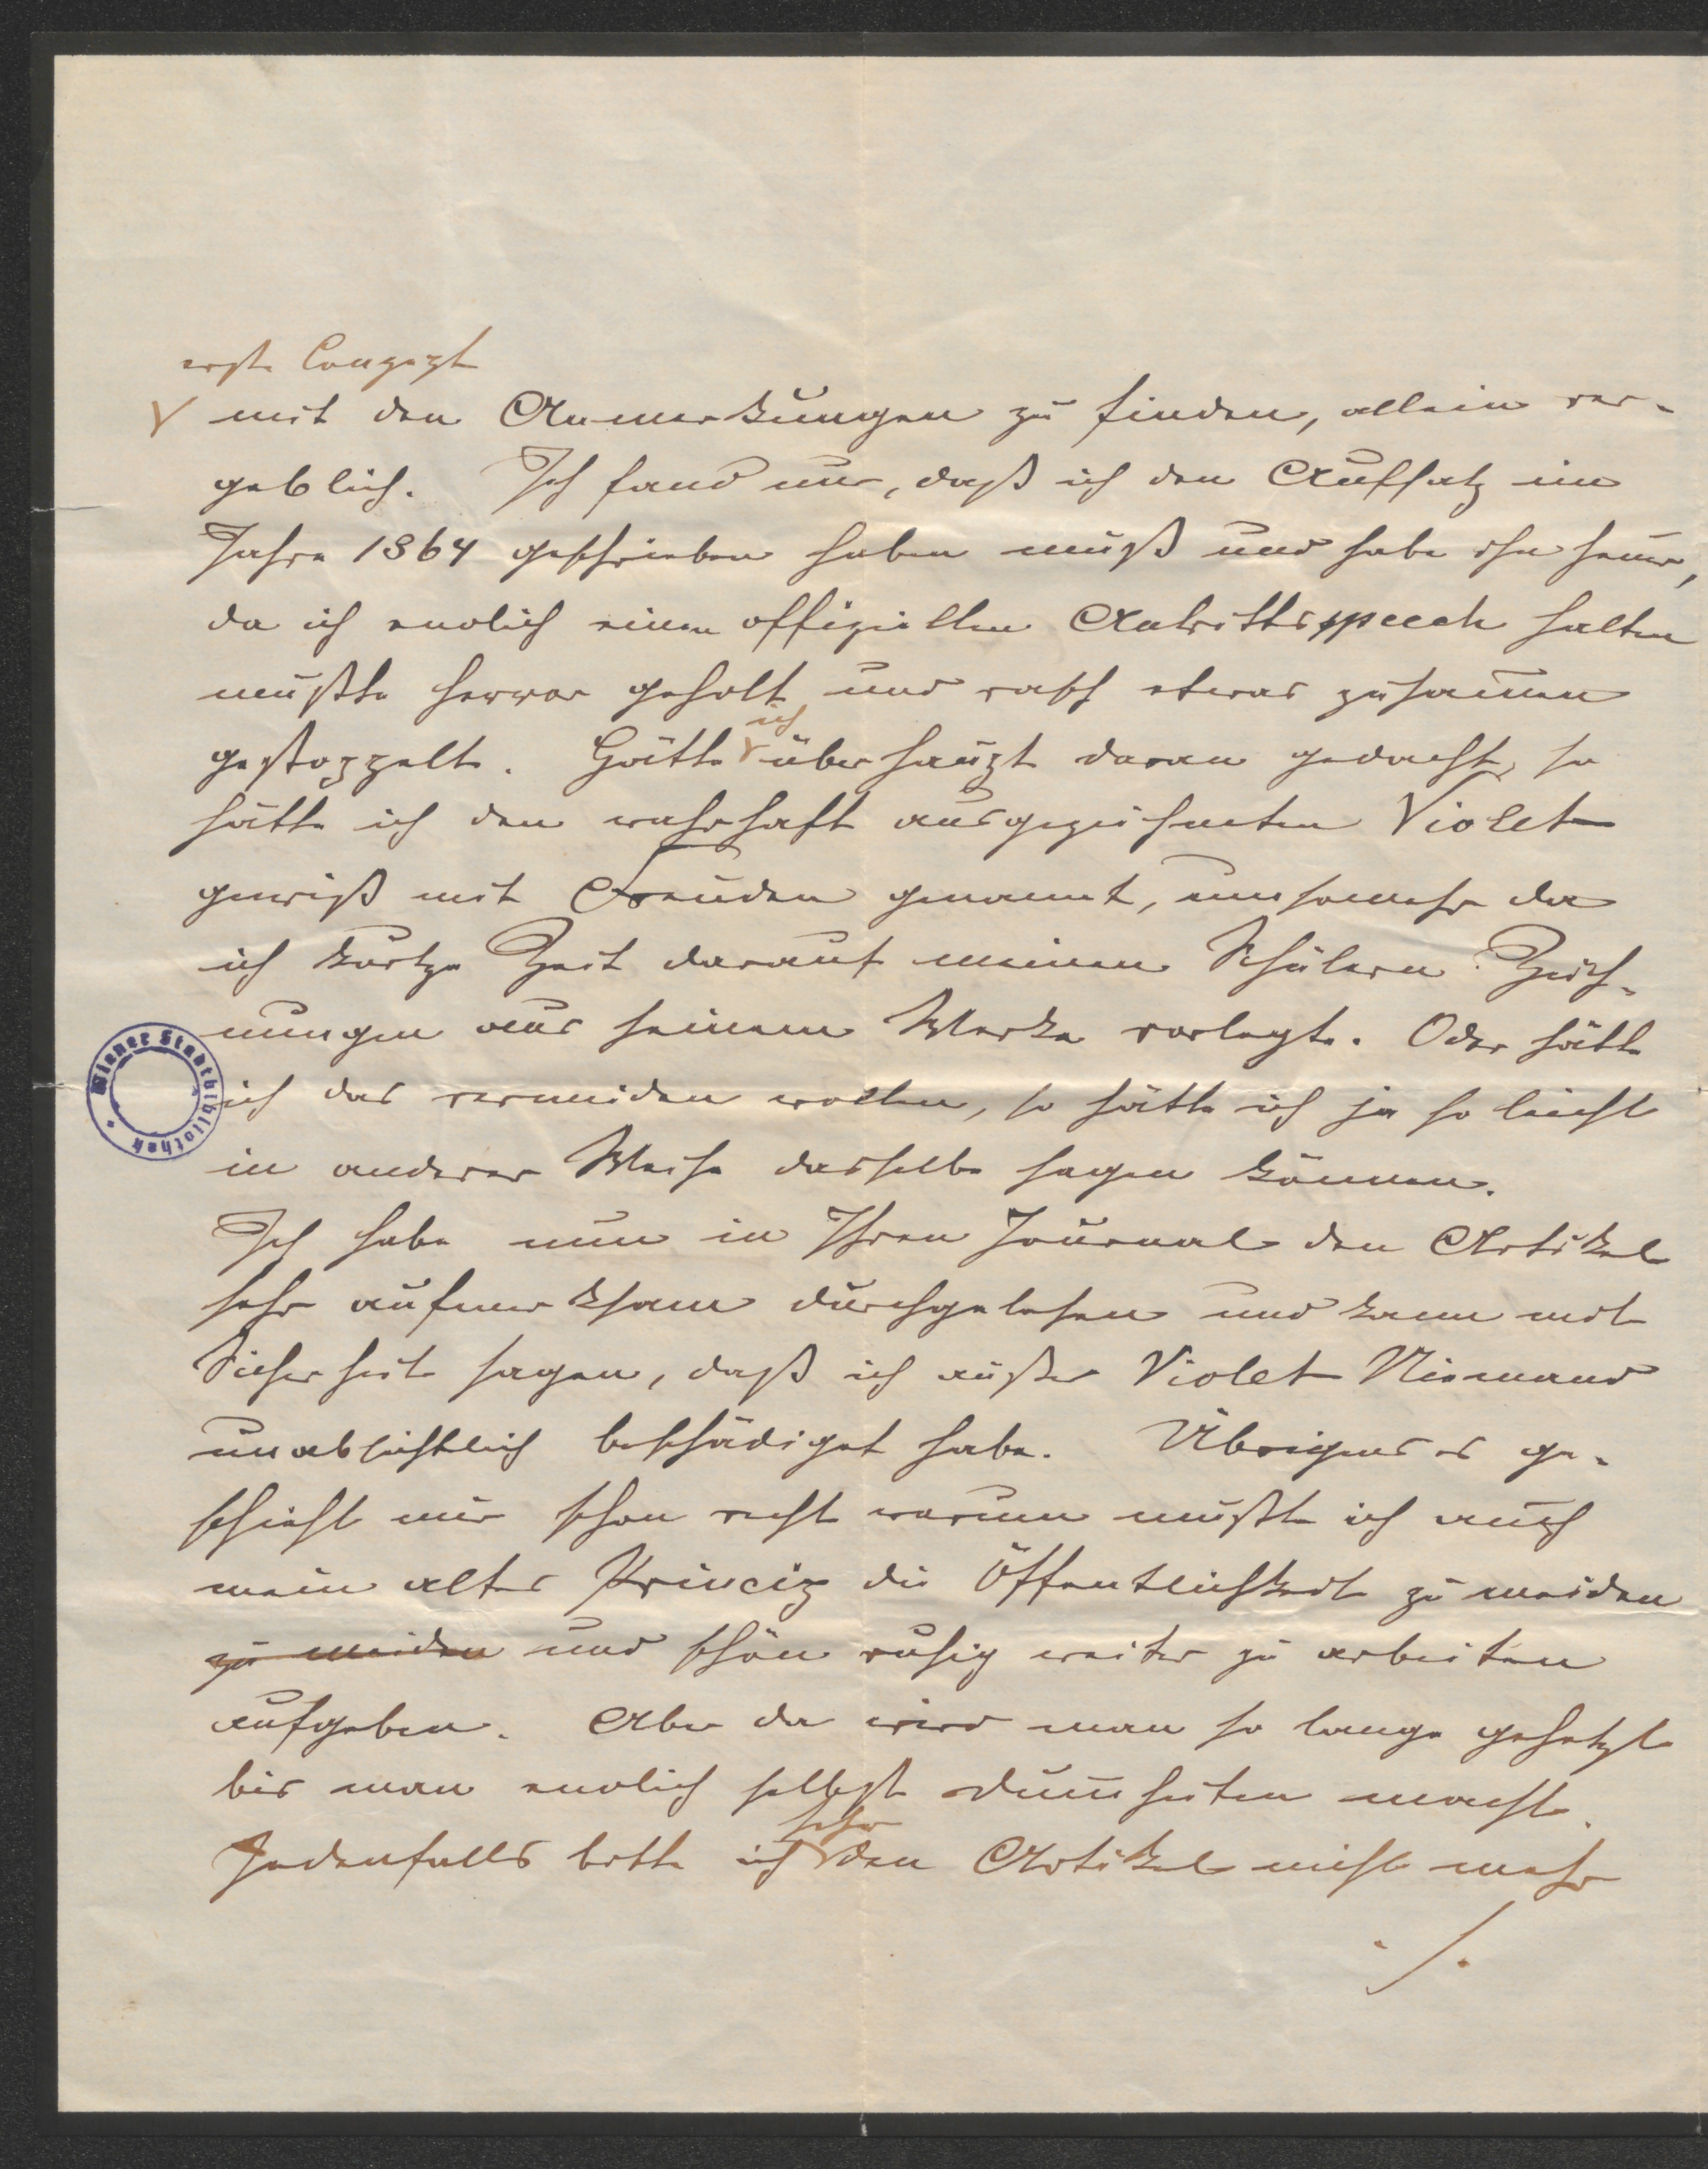 erste Conzept
V mit den Anmerkungen zu finden, allein ver-
geblich. Ich fand nur, daß ich den Aufsatz im
Jahre 1864 geschrieben haben muß und habe ihn heuer,
da ich endlich einen offiziellen Antrittsspeech halten
mußte hervor geholt und rasch etwas zusam̄en
gestoppelt. Hätte
ich
V überhaupt daran gedacht, so
hätte ich den wahrhaft ausgezeichneten Violet
gewiß mit Freuden genannt, umsomehr da
ich kurze Zeit darauf meinen Schülern Zeich-
nungen aus seinem Werke vorlegte. Oder hätte
Wiener Stadtbibliothek
ich das vermeiden wollen, so hätte ich ja so leicht
in anderer Weise dasselbe sagen können.
Ich habe nun in Ihren Journal den Artikel
sehr aufmerksam durchgelesen und kann mit
Sicherheit sagen, daß ich außer Violet Niemand
unabsichtlich beschädiget habe. Übrigens es ge-
schieht mir schon recht warum mußte ich auch
mein altes Princip die Öffentlichkeit zu meiden
zu meiden und schön ruhig weiter zu arbeiten
aufgeben. Aber da wird man so lange gehetzt
bis man endlich selbst Dum̄heiten macht.
sehr
Jedenfalls bitte ich V den Artikel nicht mehr
./.